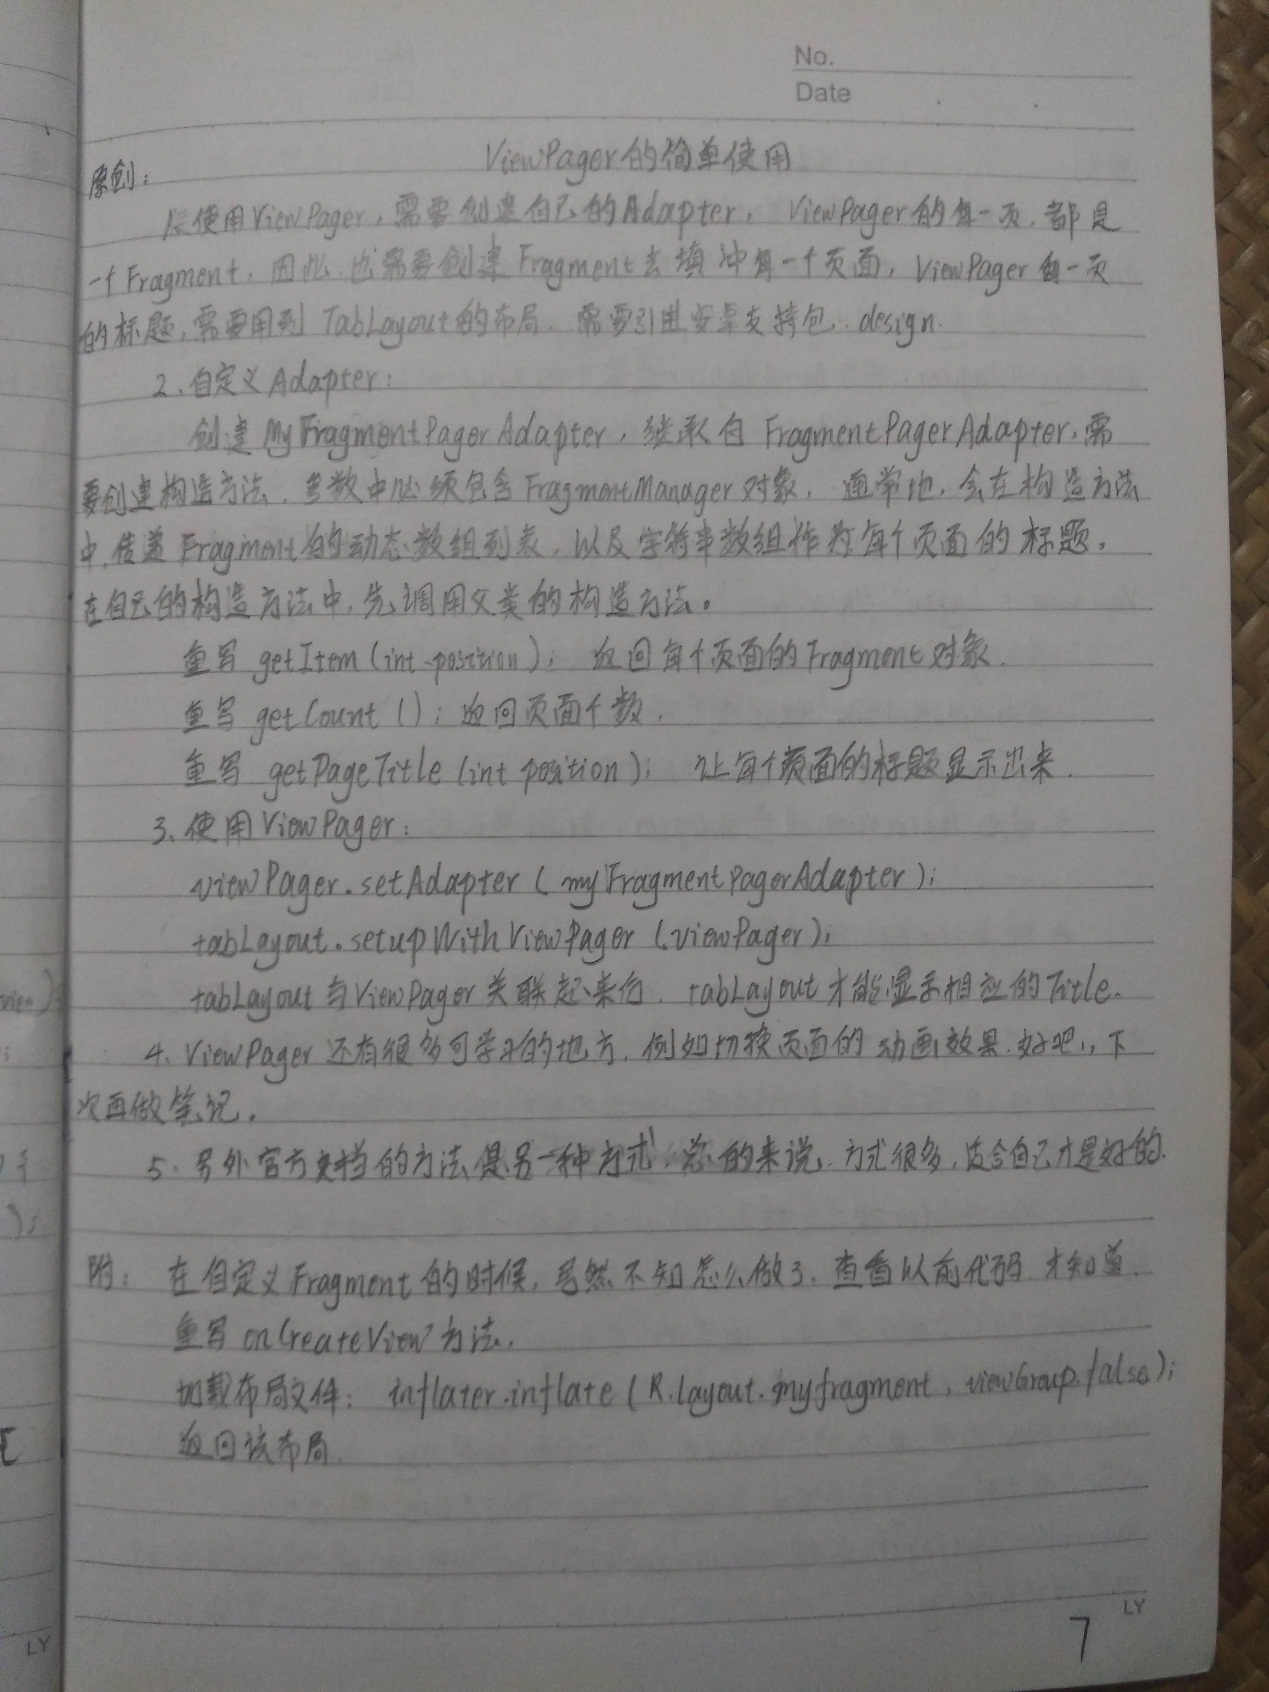 No.
Date
ViewPager的简单使用
原创:
使用ViewPager,需要创建自己的Adapter, ViewPager的每一页,都是
一个Fragment,因此,也需要创建Fragment去填冲每一个页面,ViewPager每一页
的标题,需要用到TabLayout的布局.需要引进安卓支持包:design.
2、自定义Adapter:
创建MyFragmentPagerAdapter,继承自FragmentPagerAdapter,需
要创建构造方法.参数中必须包含FragmentManager对象,通常地,会在构造方法
中,传递Fragment的动态数组列表,以及字符串数组作为每个页面的标题。
在自己的构造方法中,先调用父类的构造方法。
重写 getItem(int position); 返回每个页面的Fragment对象.
重写 getCount(); 返回页面个数.
重写 getPageTitle(int position); 让每个页面的标题显示出来.
3、使用ViewPager:
viewPager.setAdapter(myFragmentPagerAdapter);
tabLayout.setupWithViewPager(viewPager);
tabLayout与ViewPager关联起来后.tabLayout才能显示相应的Title.
4、ViewPager还有很多可学习的地方,例如切换页面的动画效果.好吧,下
次再做笔记。
5、另外官方文档的方法是另一种方式,总的来说.方式很多,适合自己才是好的.
附: 在自定义Fragment的时候,居然不知怎么做了.查看以前代码.才知道.
重写onCreateView方法.
加载布局文件: inflater.inflate(R.layout.myfragment, viewGroup.false);
返回该布局.
7
LY
LY